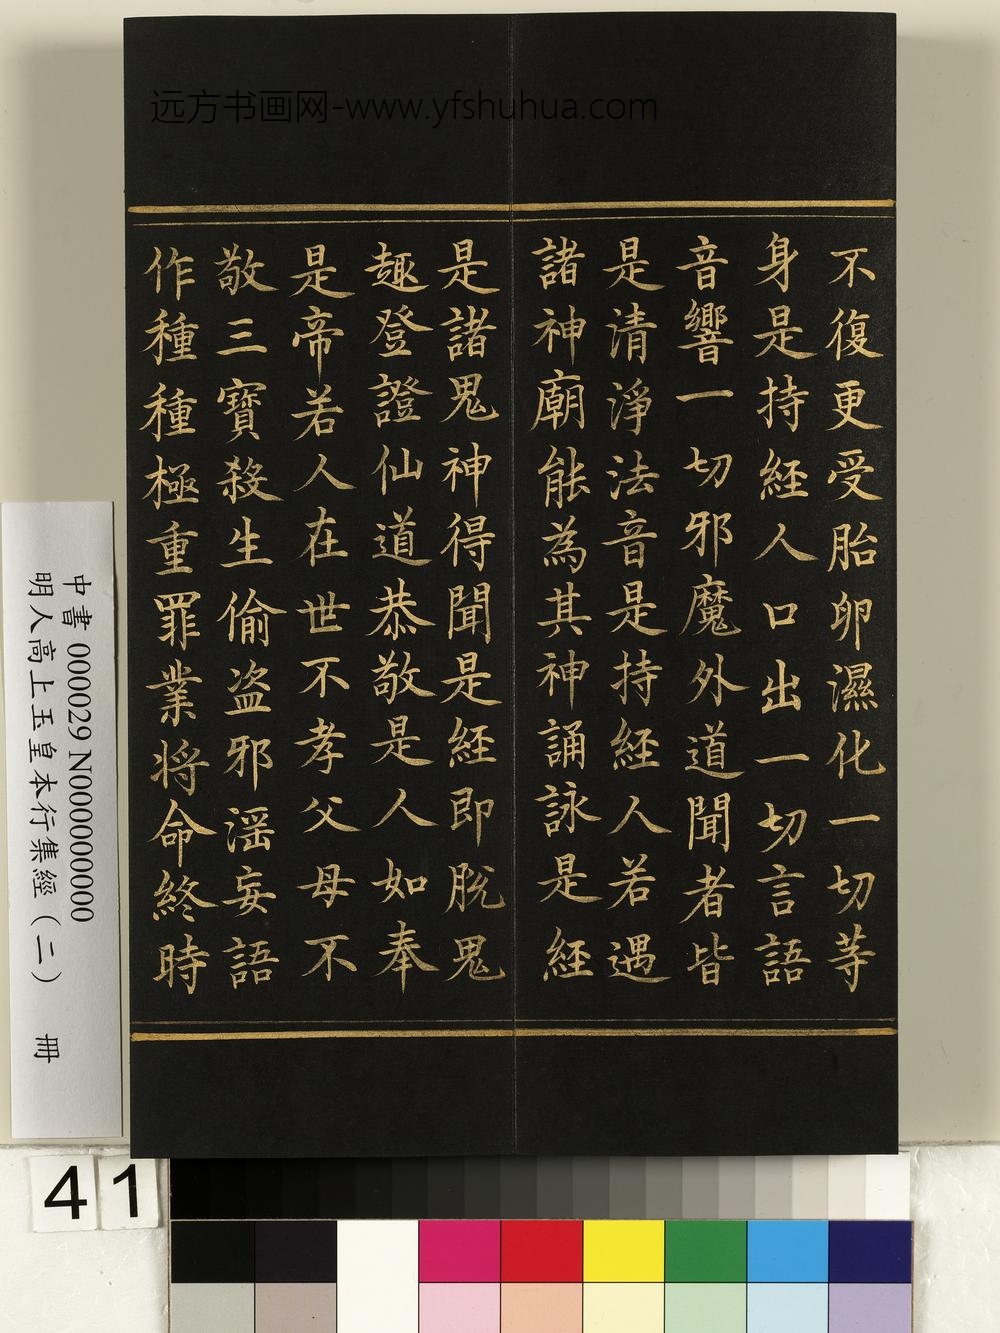 远方书画网-www.yfshuhua.com
不復更受胎卵濕化一切等
身是持経人口出一切言語
音響一切邪魔外道聞者皆
是清淨法音是持経人若遇
諸神廟能為其神誦詠是経
是諸鬼神得聞是経即脫鬼
趣登證仙道恭敬是人如奉
是帝若人在世不孝父母不
敬三寶殺生偷盜邪淫妄語
作種種極重罪業将命終時
中書 000029 N000000000
明人高上玉皇本行集經（二） 冊
41